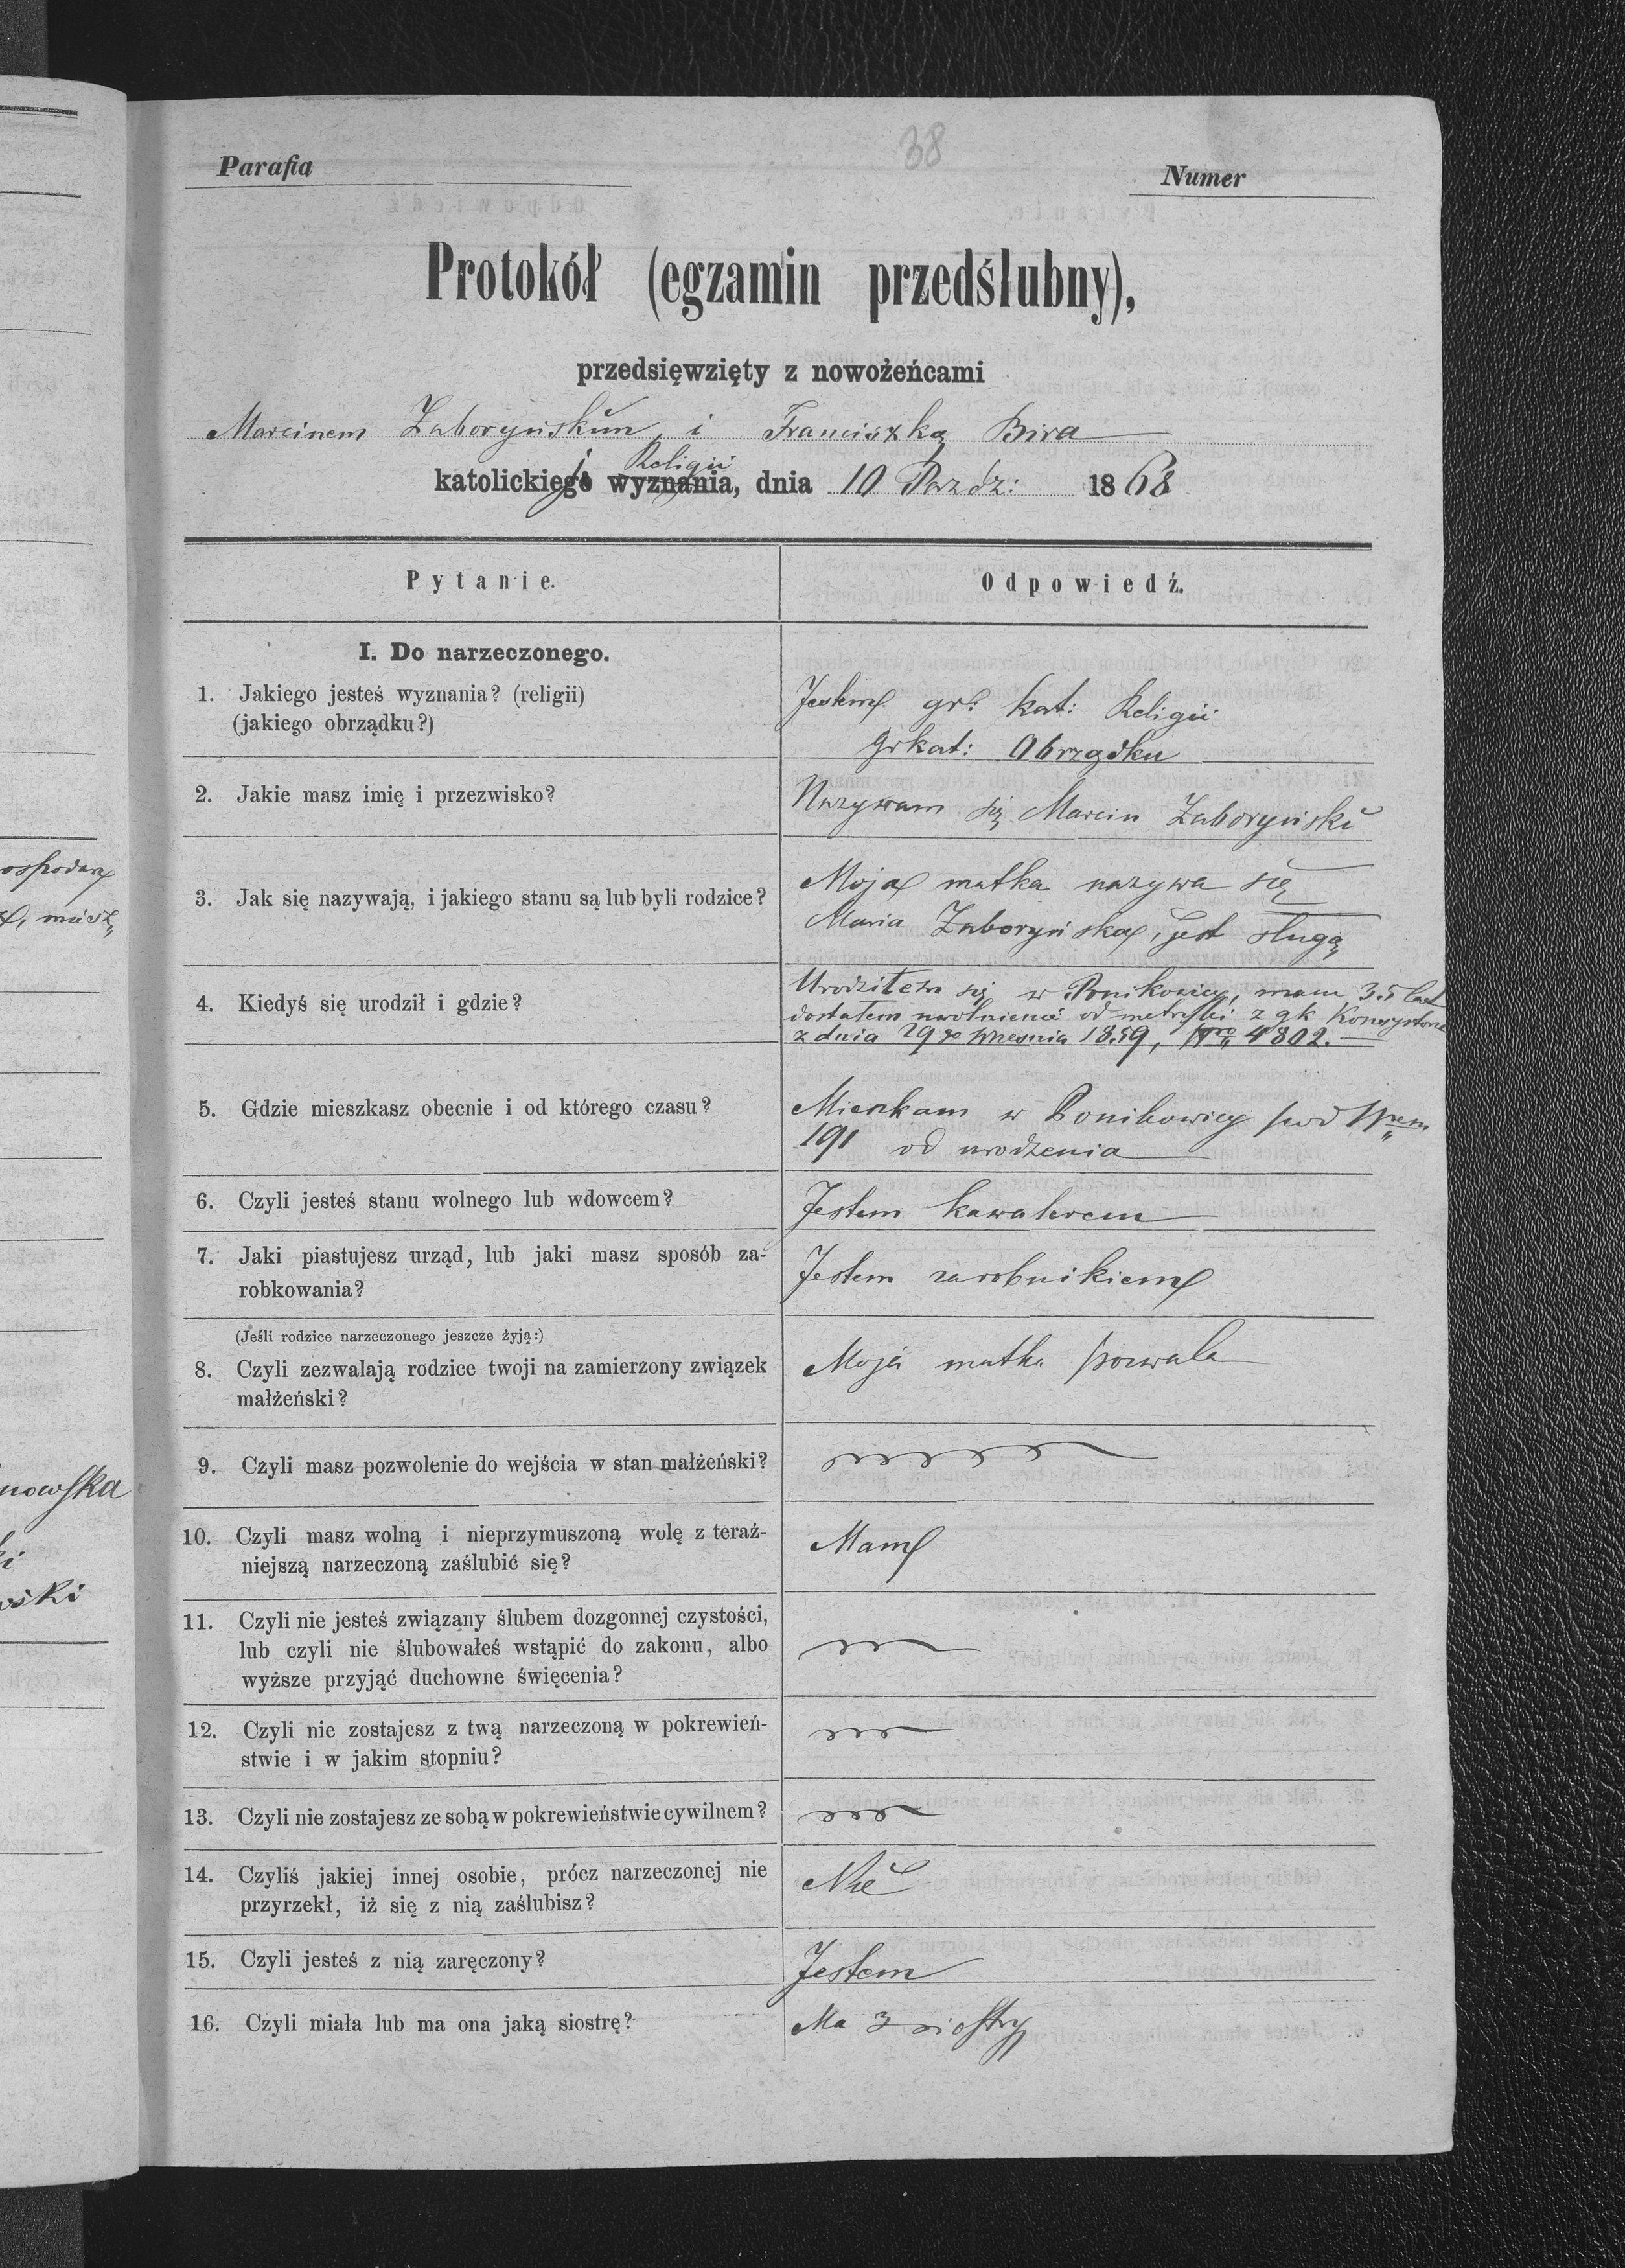 38
Parafia
Numer
Protokół (egzamin przedślubny),
przedsięwzięty z nowożeńcami
Marcinem Zaboryńskim i Franciszką Bira
katolickiej Religii wyznania, dnia 10 Paźdz: 1868
Pytanie.
Odpowiedź.
I. Do narzeczonego.
1. Jakiego jesteś wyznania? (religii)
(jakiego obrządku?)
Jestem gr: kat: Religii
grkat: Obrządku
2. Jakie masz imię i przezwisko?
Nazywam się Marcin Zaboryński
3. Jak się nazywają, i jakiego stanu są lub byli rodzice?
Moja matka nazywa się
Maria Zaboryńska, jest sługą
4. Kiedyś się urodził i gdzie?
Urodziłem się w Ponikowicy, mam 35 lat
dostałem uwolnienie od metryki z gk Konsystorza
z dnia 29go Wrzesnia 1859, Nro 4802.
5. Gdzie mieszkasz obecnie i od którego czasu?
Mieszkam w Ponikowicy pod Nrem
191 od urodzenia
6. Czyli jesteś stanu wolnego lub wdowcem?
Jestem kawalerem
7. Jaki piastujesz urząd, lub jaki masz sposób za-
robkowania?
Jestem zarobnikiem
(Jeśli rodzice narzeczonego jeszcze żyją:)
8. Czyli zezwalają rodzice twoji na zamierzony związek
małżeński?
Moja matka pozwala
9. Czyli masz pozwolenie do wejścia w stan małżeński?
10. Czyli masz wolną i nieprzymuszoną wolę z teraź-
niejszą narzeczoną zaślubić się?
Mam
11. Czyli nie jesteś związany ślubem dozgonnej czystości,
lub czyli nie ślubowałeś wstąpić do zakonu, albo
wyższe przyjąć duchowne święcenia?
12. Czyli nie zostajesz z twą narzeczoną w pokrewień-
stwie i w jakim stopniu?
13. Czyli nie zostajesz ze sobą w pokrewieństwie cywilnem?
14. Czyliś jakiej innej osobie, prócz narzeczonej nie
przyrzekł, iż się z nią zaślubisz?
Nie
15. Czyli jesteś z nią zaręczony?
Jestem
16. Czyli miała lub ma ona jaką siostrę?
Ma 3 siostry